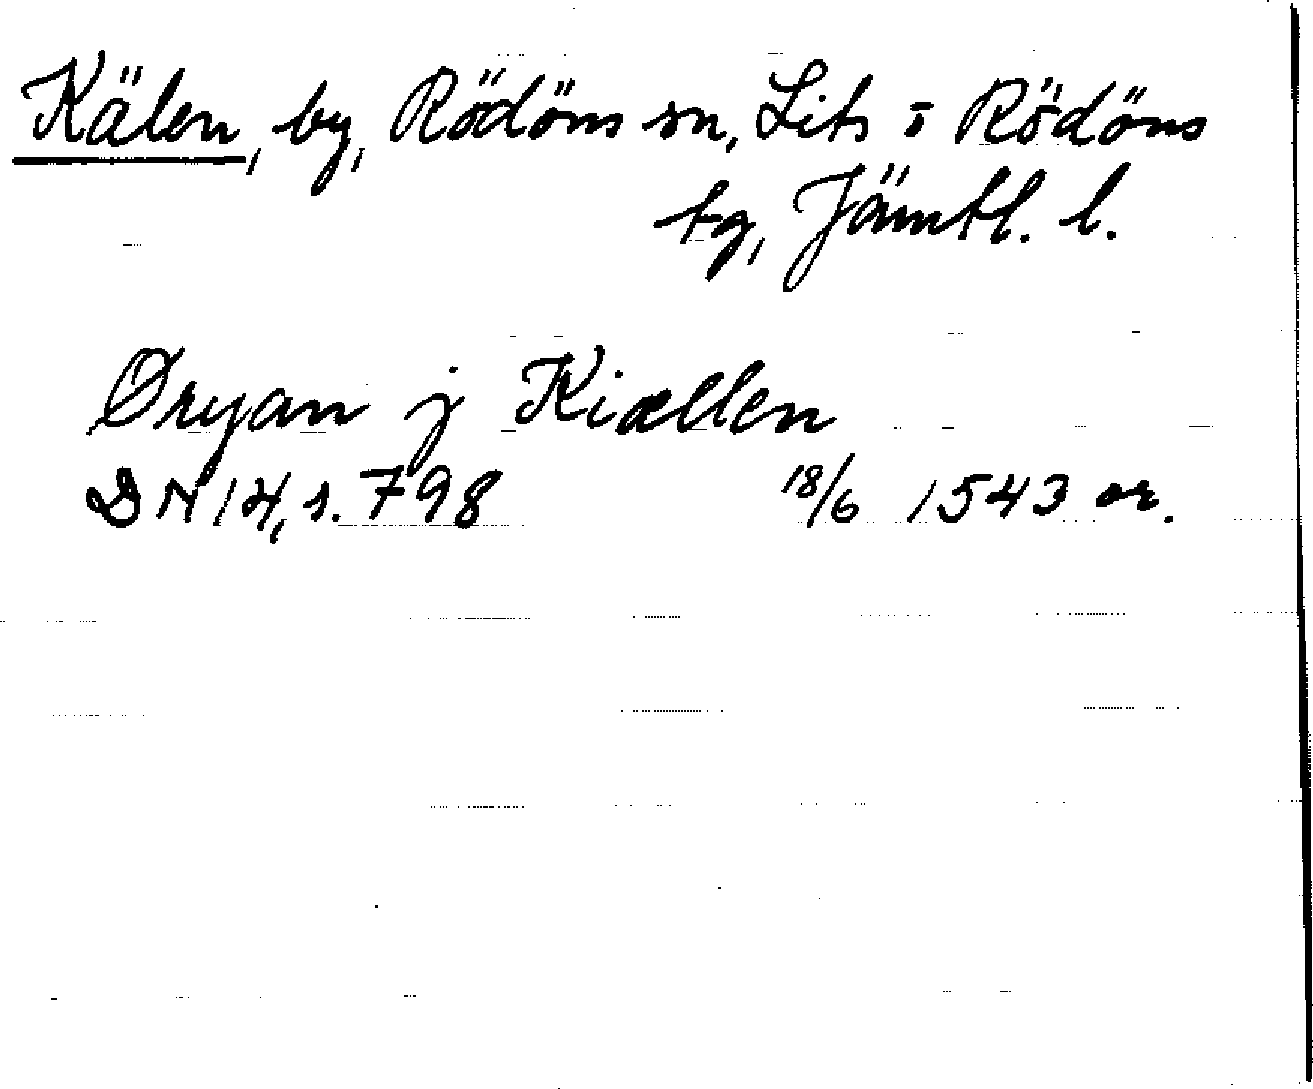 Kälen, by, Rödöns sn, Lits o Rödöns
tg, Jämtl. l.
Øryan j Kiællen
DN 14, s. 798 18/6 1543 or.